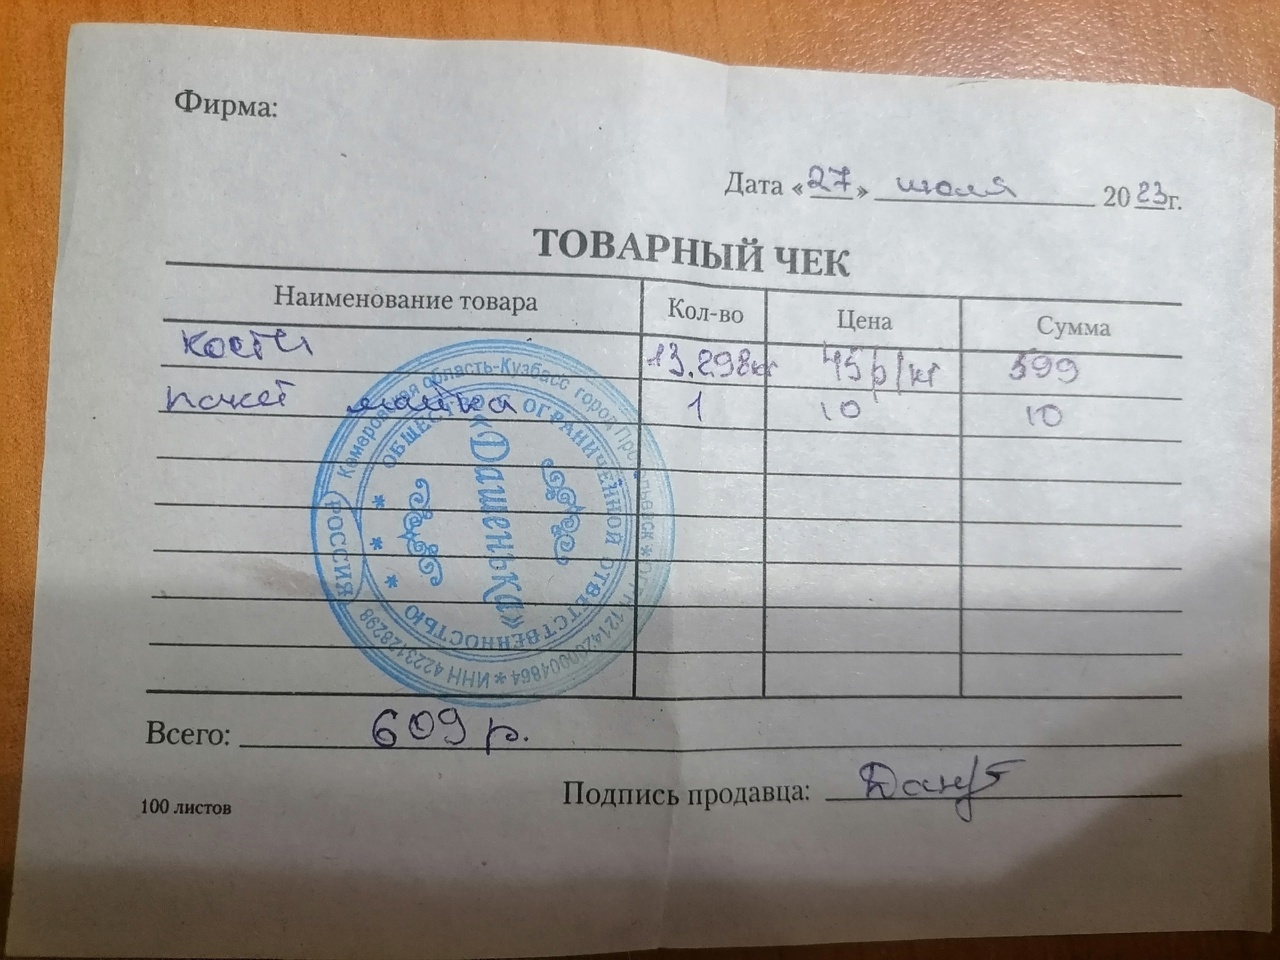 Фирма:
Дата «27» июля 2023г.
ТОВАРНЫЙ ЧЕК
Наименование товара Кол-во Цена Сумма
кости 13.298кг 45р/кг 599
пакет майка 1 10 10
РОССИЯ Кемеровская область-Кузбасс город Прокопьевск * ОГРН 1214200004864 * ИНН 4223128298
ОБЩЕСТВО С ОГРАНИЧЕННОЙ ОТВЕТСТВЕННОСТЬЮ * * *
«Дашенька»
Всего: 609 р.
Подпись продавца:
100 листов